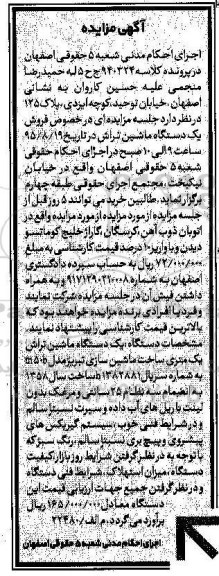 آگهی مزایده
اجرای احکام مدنی شعبه ۵ حقوقی اصفهان
در پرونده کلاسه ۹۴۰۳۲۴ ج ح ۵ له حمیدرضا
منجمی علیه حسین کاروان به نشانی
اصفهان، خیابان توحید، کوچه ایزدی، پلاک ۱۲۵
در نظر دارد جلسه مزایده ای در خصوص فروش
یک دستگاه ماشین تراش در تاریخ ۹۵/۸/۱۹
ساعت ۹ الی ۱۰ صبح در اجرای احکام حقوقی
شعبه ۵ حقوقی اصفهان واقع در خیابان
نیکبخت، مجتمع اجرای حقوقی طبقه چهارم
برگزار نماید. طالبین خرید می توانند ۵ روز قبل از
جلسه مزایده از مورد مزایده واقع در
اتوبان ذوب آهن، کرسگان، گاراژ خلیج کوماتسو
دیدن و با واریز ۱۰ درصد قیمت کارشناسی به مبلغ
ریال به حساب سپرده دادگستری
اصفهان به شماره ۲۱۷۱۲۹۰۲۱۰۰۸ و به همراه
داشتن فیش آن در جلسه مزایده شرکت نمایند
و فرد یا افرادی برنده مزایده خواهند بود که
بالاترین قیمت کارشناسی را پیشنهاد نمایند.
مشخصات دستگاه: یک دستگاه ماشین تراش
یک متری ساخت ماشین سازی تبریز مدل
به شماره سریال ۱۳۸۲۸۸۱ ساخت سال ۱۳۵۸
به انضمام سه نظام ۲۵ سانتی و مرغک بدون
لینت با ریل های آب داده و سپرت نسبتا سالم
و در شرایط فنی خوب، سیستم گیربکس های
پیشروی و پیچ بری نسبتا سالم، رنگ سبز که
با توجه به در نظر گرفتن شرایط روز بازار، کیفیت
دستگاه، میزان استهلاک، شرایط فنی دستگاه
و در نظر گرفتن جمیع جهات ارزیابی قیمت این
دستگاه معادل ۱۶۵/۰۰۰/۰۰۰ ریال
برآورد می گردد. م الف/ ۲۲۴۸۰
اجرای احکام مدنی شعبه ۵ حقوقی اصفهان